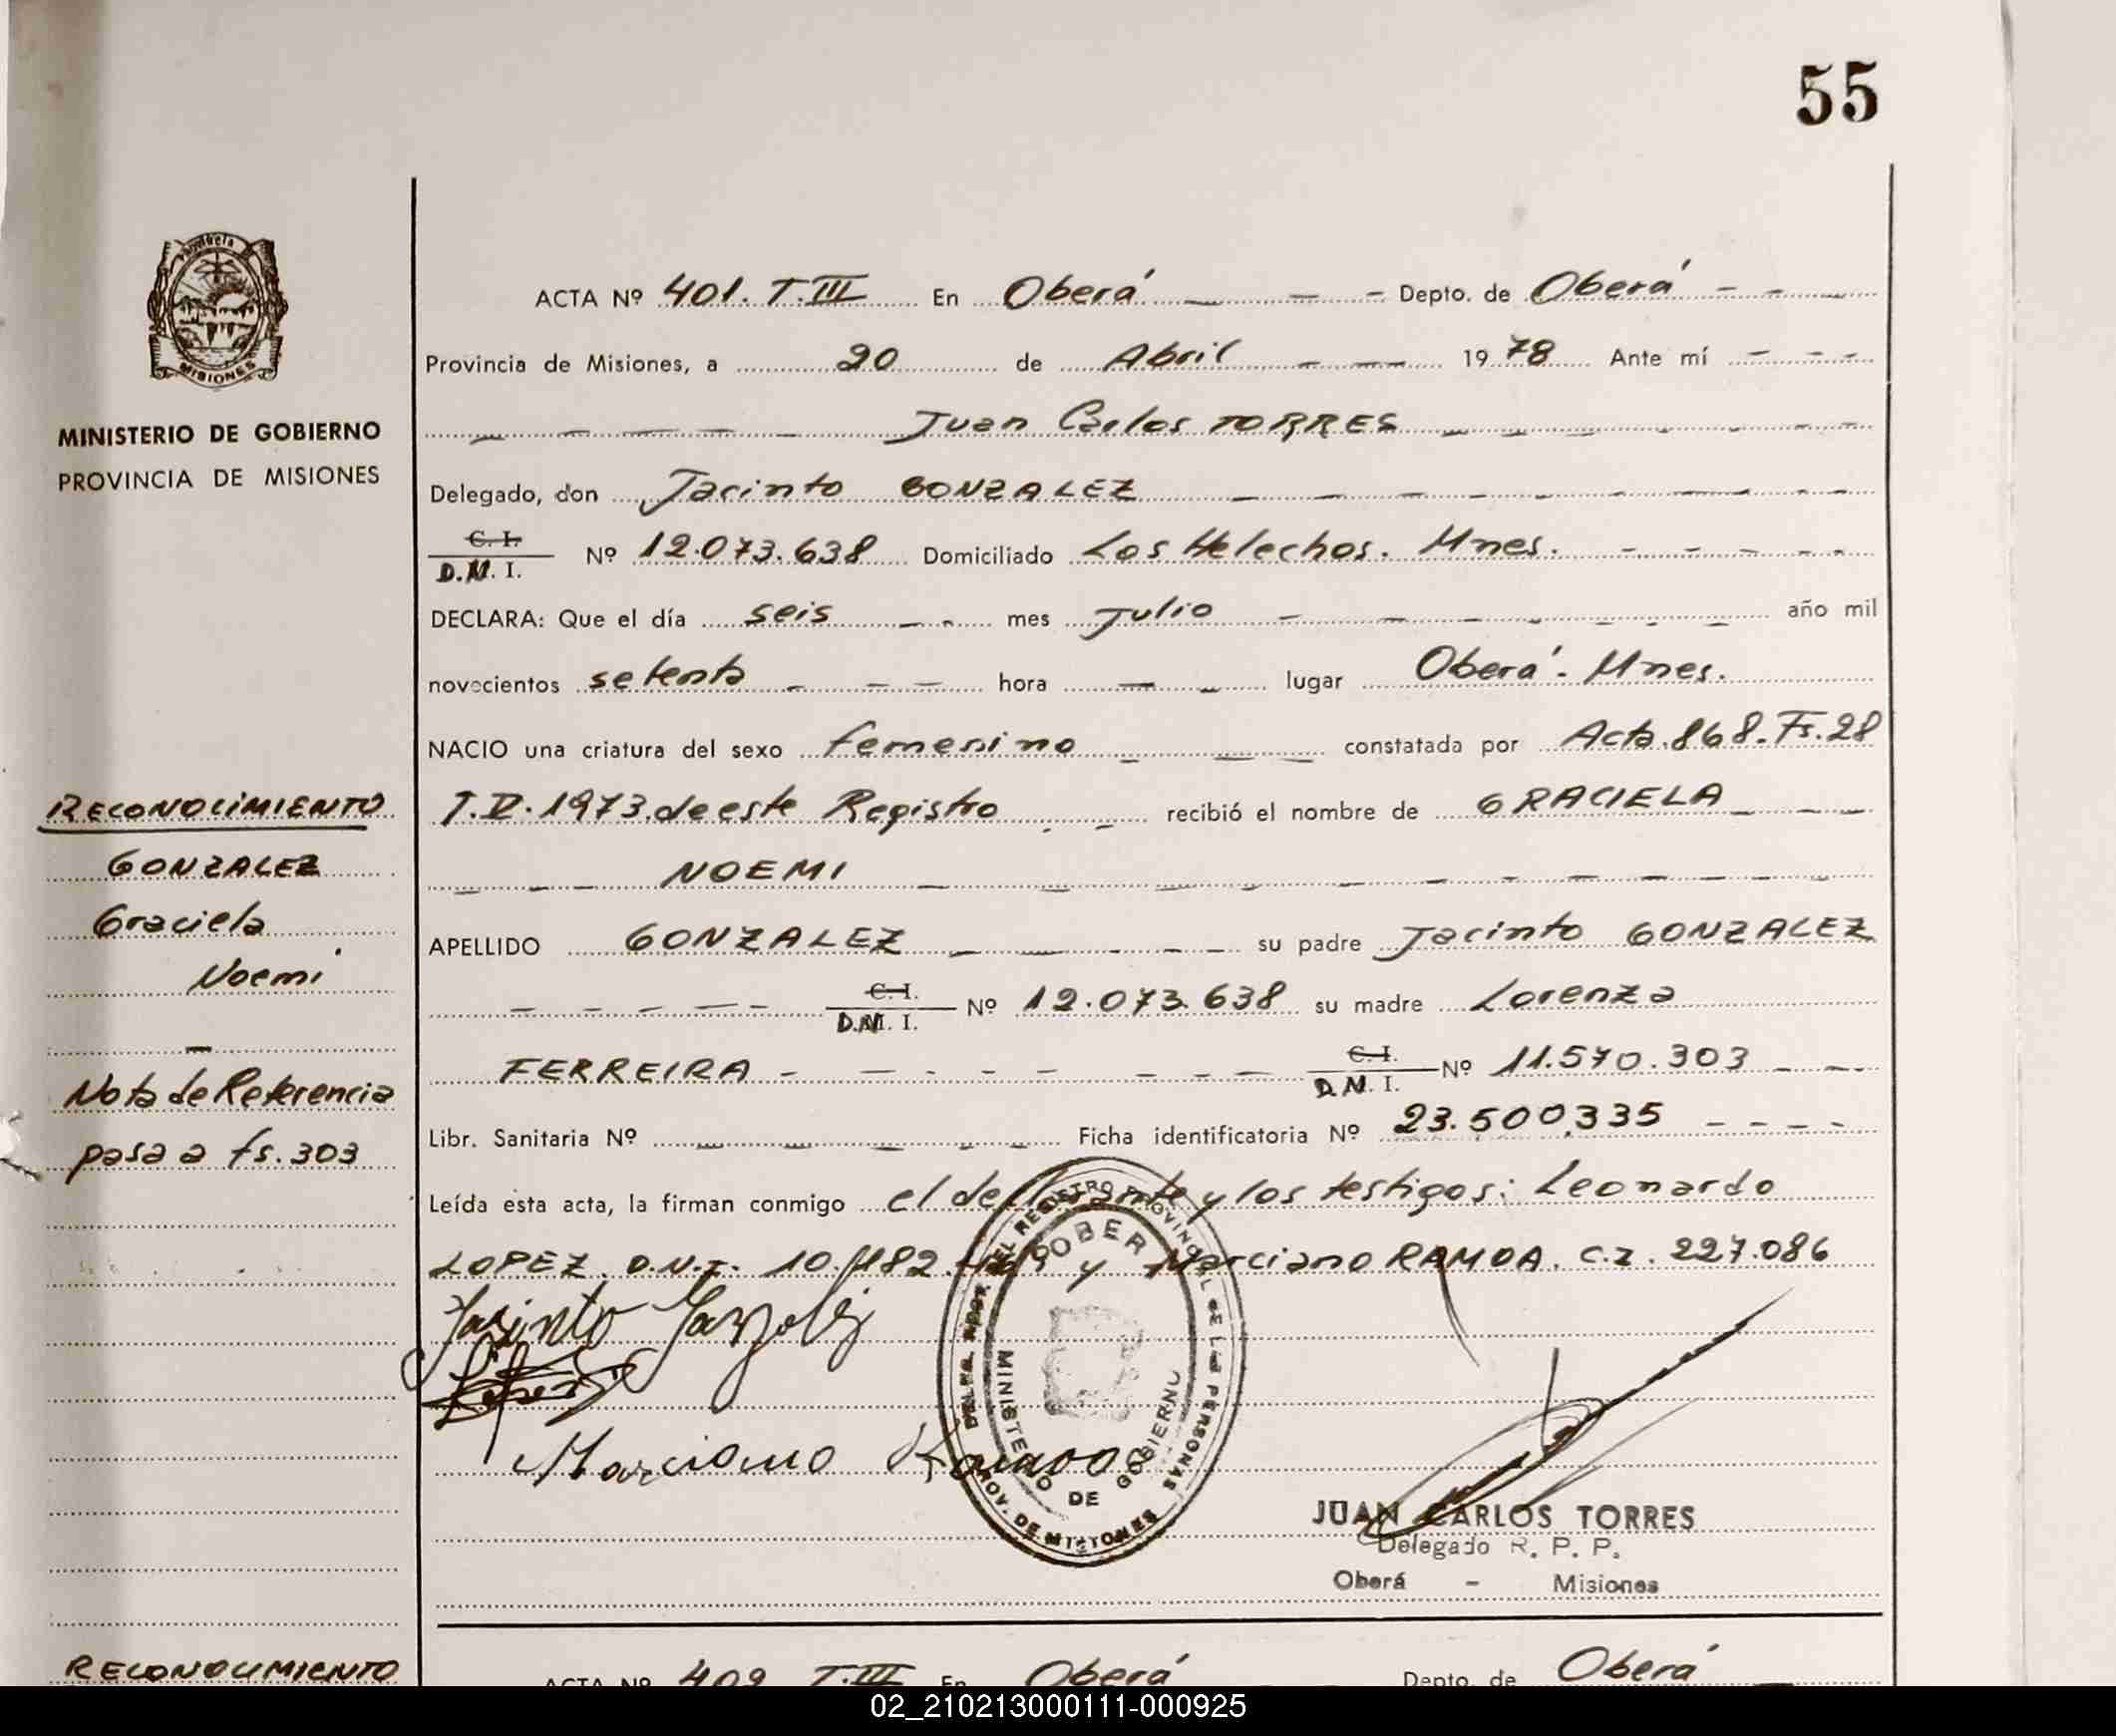 55
Provincia
MISIONES
MINISTERIO DE GOBIERNO
PROVINCIA DE MISIONES
RECONOCIMIENTO
GONZALEZ
Graciela
Noemi
Nota de Referencia
pasa a fs. 303
ACTA Nº 401. T. III En Oberá Depto. de Oberá
Provincia de Misiones, a 20 de Abril 1978 Ante mí
Juan Carlos TORRES
Delegado, don Jacinto GONZALEZ
C. I.
D.N. I. Nº 12.073.638 Domiciliado Los Helechos. Mnes.
DECLARA: Que el día seis mes Julio año mil
novecientos setenta hora lugar Oberá - Mnes.
NACIO una criatura del sexo femenino constatada por Acta.868-Fs.28
1973. de este Registro recibió el nombre de GRACIELA
NOEMI
APELLIDO GONZALEZ su padre Jacinto GONZALEZ
C. I.
D.N. I. Nº 12.073.638 su madre Lorenza
FERREIRA C. I.
D.N. I. Nº 11.570.303
Libr. Sanitaria Nº Ficha identificatoria Nº 23.500.335
Leída esta acta, la firman conmigo el declarante y los testigos: Leonardo
LOPEZ. D.N.I. y Marciano RAMOA. C.I. 227.086
Jacinto Gonzalez
Marciano Ramoa
DEL REGISTRO PROVINCIAL DE LAS PERSONAS
PROV. DE MISIONES
MINISTERIO DE GOBIERNO
JUAN CARLOS TORRES
Delegado R. P. P.
Oberá - Misiones
RECONOCIMIENTO
ACTA Nº 402 T.III En Oberá Depto. de Oberá
02_210213000111-000925